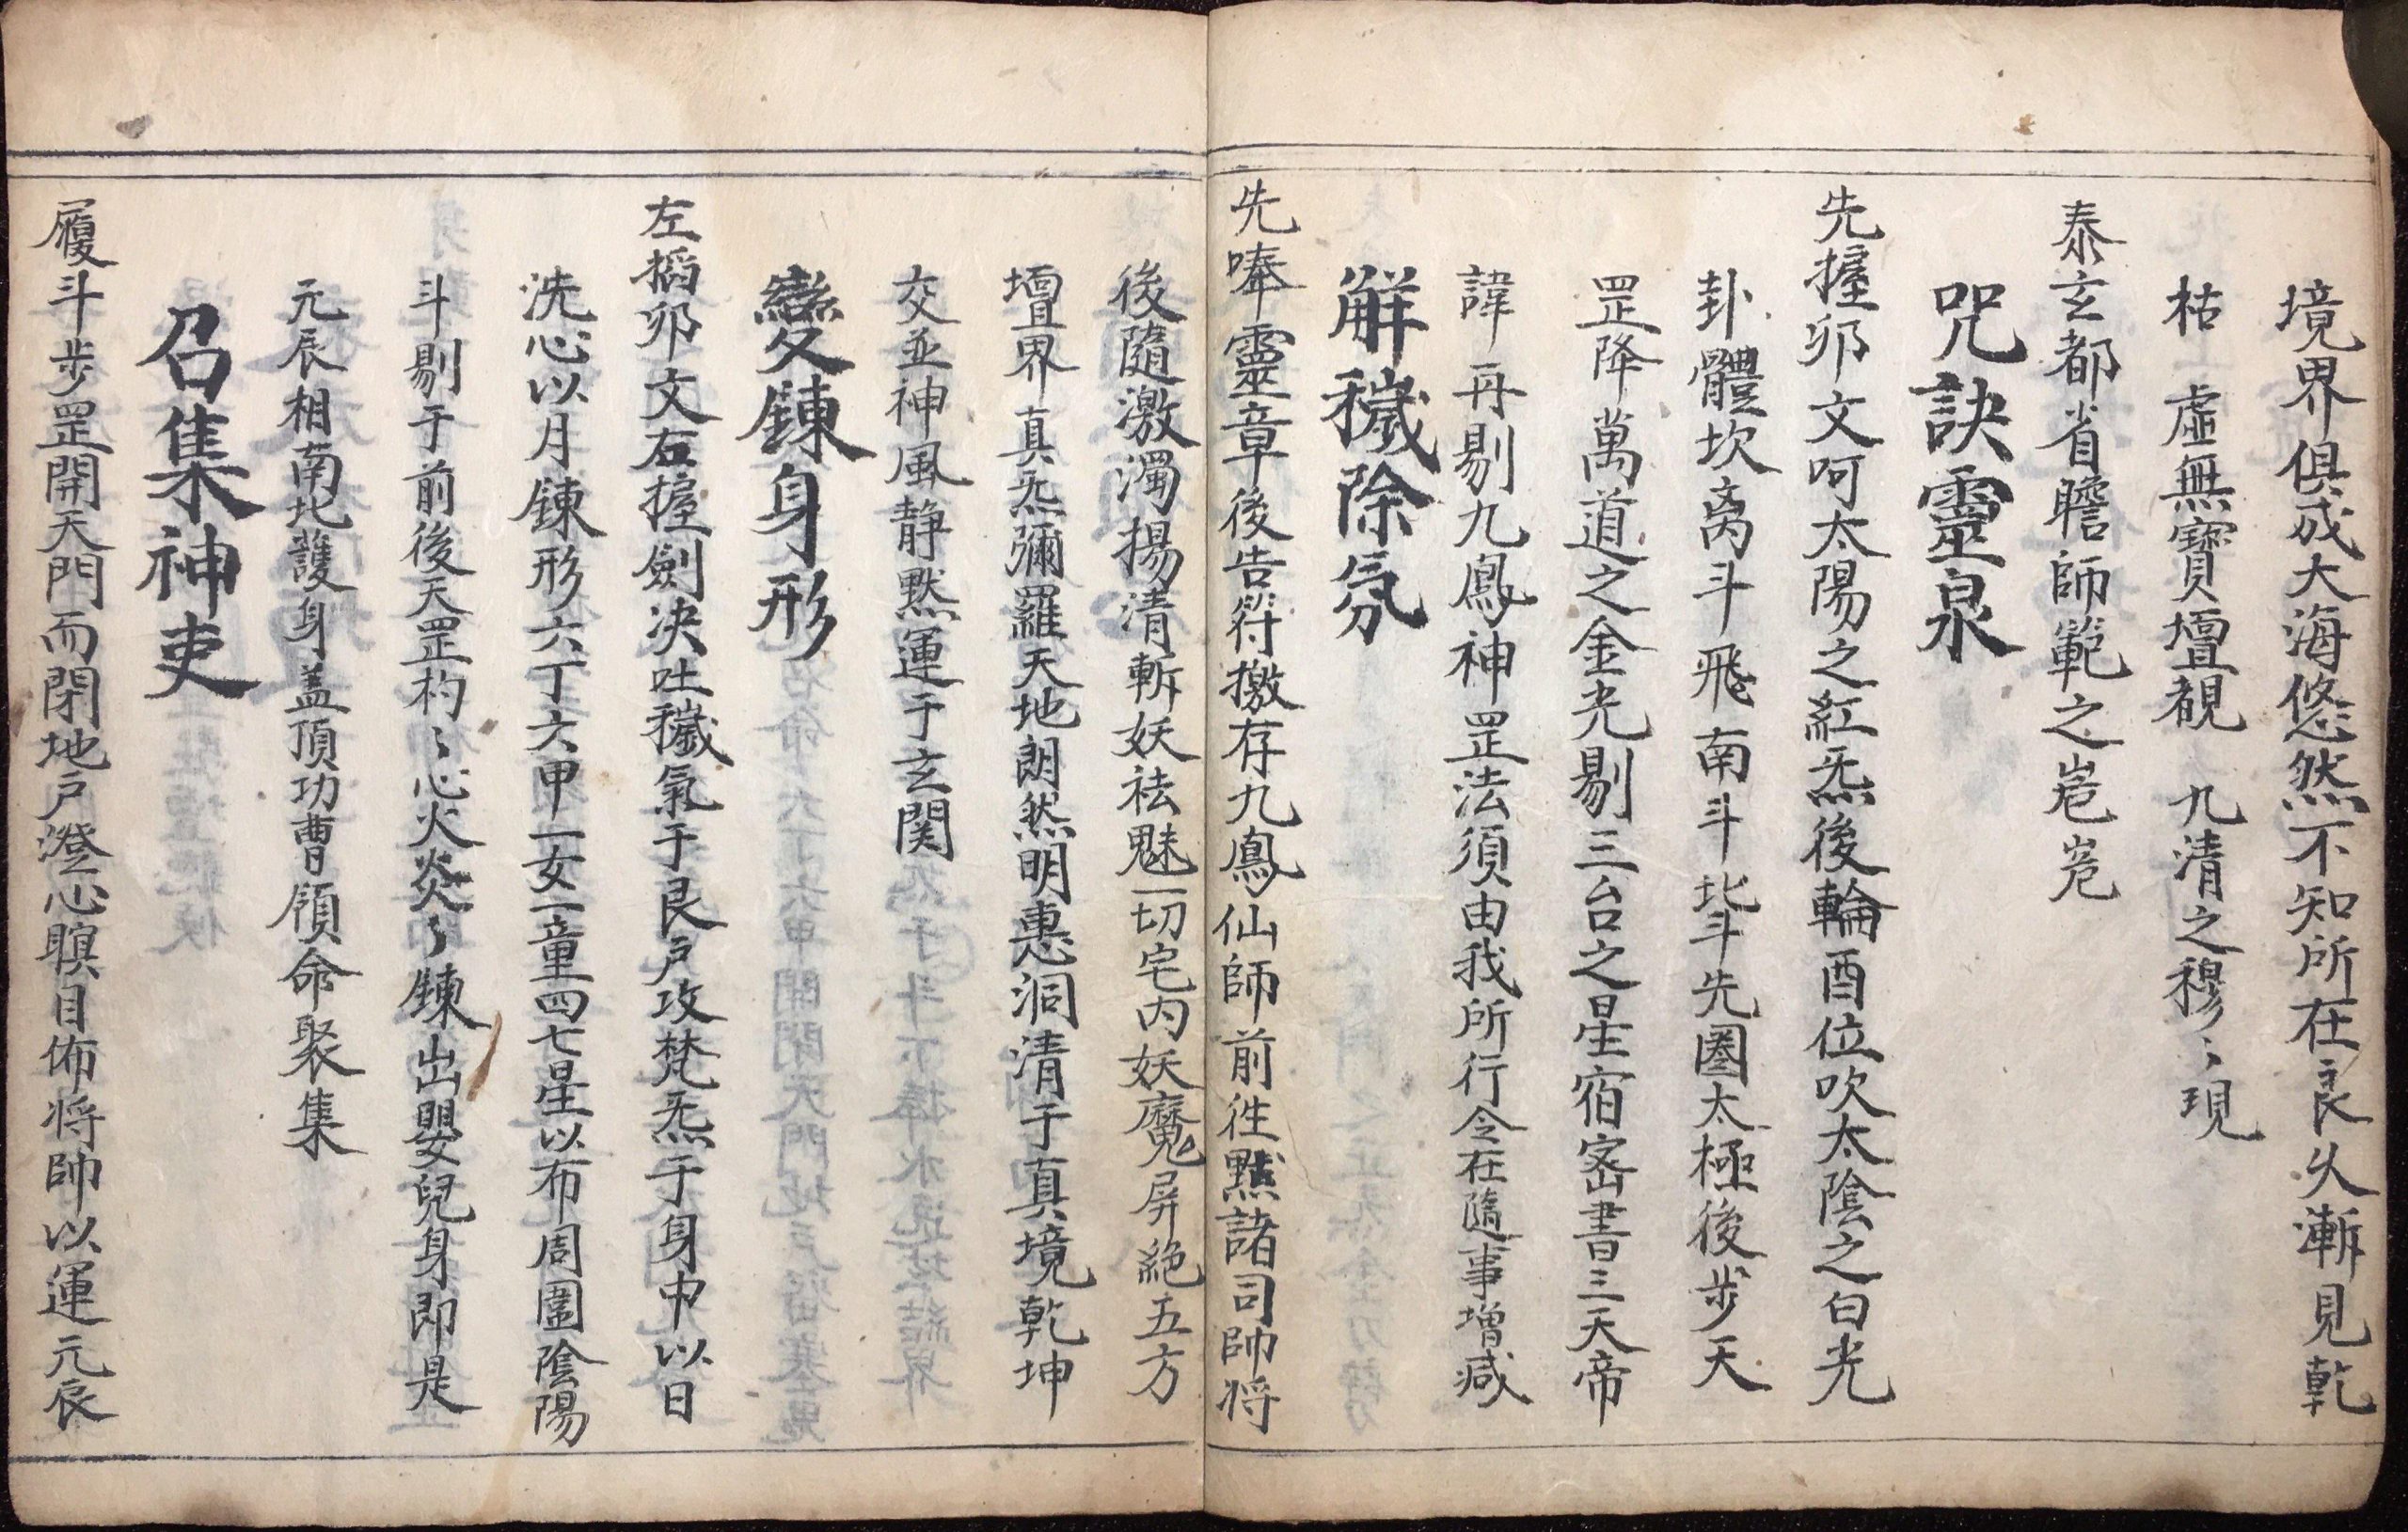 境界俱成大海悠然不知所在良久漸見乾
枯 虛無寶壇覩 九清之穆〻現
泰玄都省瞻師範之岩岩
咒訣靈泉
先握卯文呵太陽之紅炁後輪酉位吹太陰之白光
卦體坎离斗飛南斗北斗先圈太極後步天
罡降萬道之金光剔三台之星宿密書三天帝
諱再剔九鳳神罡法須由我所行令在隨事增减
解穢除氛
先嗪靈章後告符檄存九鳳仙師前徃黙諸司帥将
後隨激濁揚清斬妖祛魅一切宅内妖魔屏絶五方
壇界真炁彌羅天地朗然明惠洞清于真境乾坤
交並神風静黙運于玄関
變鍊身形
左搯卯文右握劍决吐穢氣于艮戶攻梵炁于身中以日
洗心以月鍊形六丁六甲一女一童四七星以布周圍陰陽
斗剔于前後天罡杓〻心火炎〻鍊出嬰兒身即是
元辰相南北護身盖頂功曹領命聚集
召集神吏
履斗步罡開天門而閉地戶澄心瞑目佈将帥以運元辰